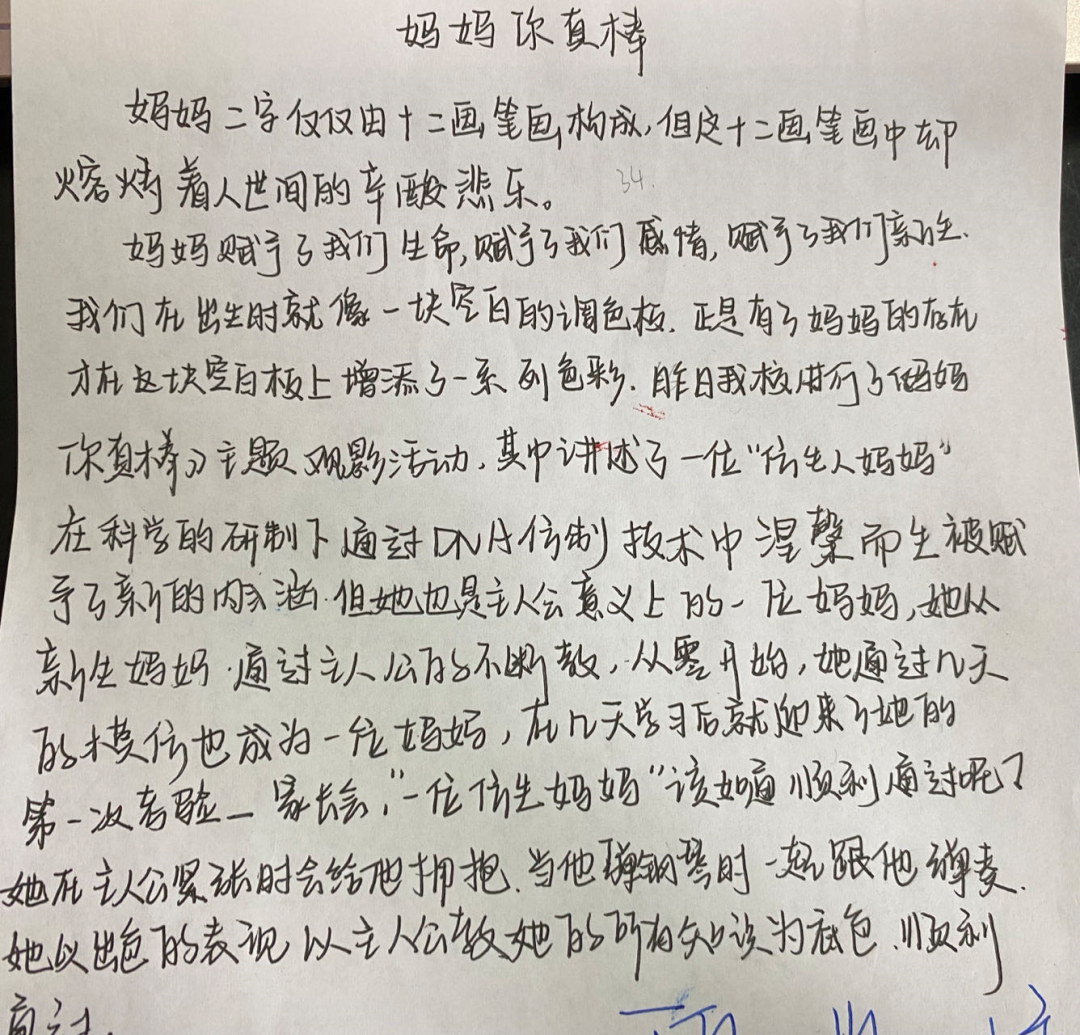 妈妈你真棒
妈妈二字仅仅由十二画笔画构成,但这十二画笔画中却
熔烤着人世间的辛酸悲乐。
34.
妈妈赋予了我们生命,赋予了我们感情,赋予了我们新生.
我们在出生时就像一块空白的调色板.正是有了妈妈的存在
才在这块空白板上增添了一系列色彩.昨日我校进行了《妈妈
你真棒》主题观影活动,其中讲述了一位“仿生人妈妈”
在科学的研制下通过DNA仿制技术中涅槃而生被赋
予了新的内涵.但她也是主人公意义上的一位妈妈,她从
新生妈妈.通过主人公的不断教,从零开始,她通过几天
的模仿也成为一位妈妈,在几天学习后就迎来了她的
第一次考验—家长会,“一位仿生妈妈”该如通顺利通过呢?
她在主人公紧张时会给他拥抱.当他弹钢琴时一起跟他弹奏.
她以出色的表现以主人公教她的所有知识为底色.顺利
通过.